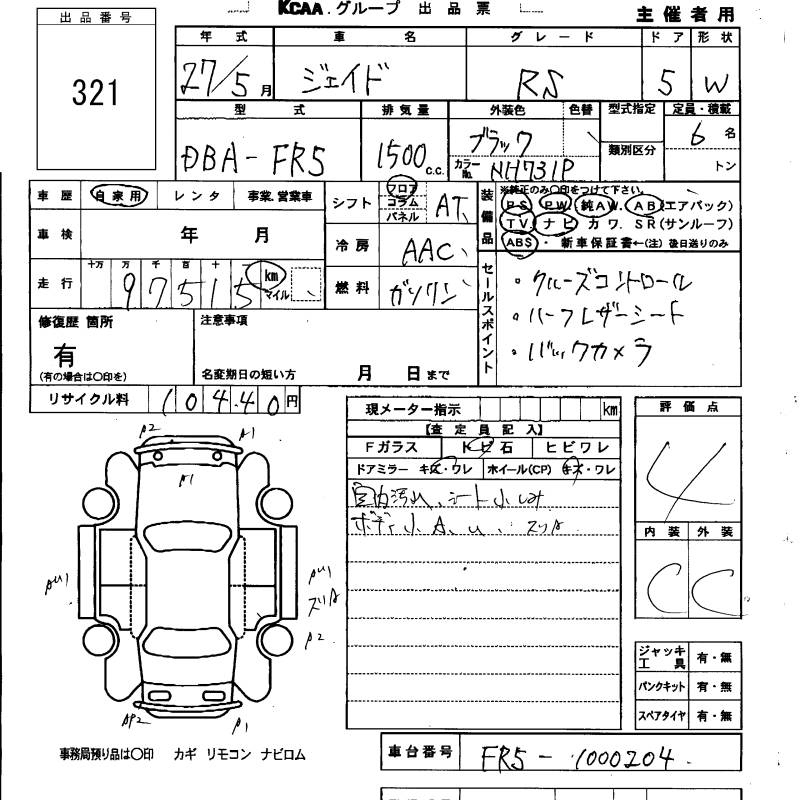 KCAA.グループ 出品票
主催者用
出品番号
321
年式 車名 グレード ドア 形状
27/5月 ジェイド RS 5 W
型式 排気量 外装色 色替 型式指定 定員・積載
類別区分
DBA-FR5 1500 c.c. ブラック カラーNo. NH731P 6名
トン
車歴 自家用 レンタ 事業.営業車
車検 年 月
走行 十万 万 千 百 十 一 km マイル
97515
シフト フロア コラム パネル AT
冷房 AAC
燃料 ガソリン
装備品 ※純正のみ〇印をつけて下さい。
PS PW 純AW. AB(エアバック)
TV ナビ カワ. SR(サンルーフ)
ABS ・ 新車保証書←(注)後日送りのみ
セールスポイント
・クルーズコントロール
・ハーフレザーシート
・バックカメラ
修復歴 箇所
有
(有の場合は〇印を)
注意事項
名変期日の短い方 月 日まで
リサイクル料 10440円
現メーター指示 km
【査定員記入】
Fガラス トビ石 ヒビワレ
ドアミラー キズ・ワレ ホイール(CP) キズ・ワレ
室内汚れ、シート小しみ
ボディ小A、U、スリA
評価点
4
内装 外装
C C
A2 A1
A1
AU1
AU1
スリA
A2
AP2 A1
ジャッキ工具 有・無
パンクキット 有・無
スペアタイヤ 有・無
事務局預り品は〇印 カギ リモコン ナビロム
車台番号 FR5-1000204